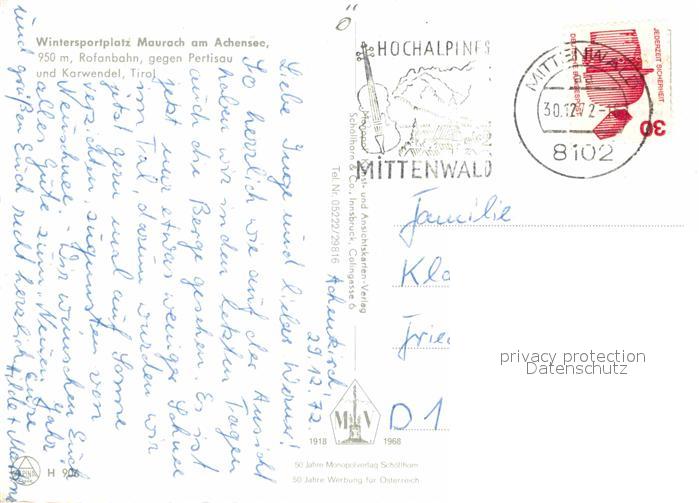 Wintersportplatz Maurach am Achensee,
950 m, Rofanbahn, gegen Pertisau
und Karwendel, Tirol
Achenkirch,
29.12.72
Liebe Inge und lieber Werner!
So herrlich wie auf der Ansicht
haben wir in den letzten Tagen
auch die Berge gesehen. Es ist
jetzt nur etwas weniger Schnee
im Tal, darum würden wir
jetzt gern mal auf Sonne
verzichten, zugunsten von
Neuschnee. Wir wünschen Euch
alles Gute zum Neuen Jahr
und grüßen Euch recht herzlich Eure
Hilde +
H 906
Kunst- und Ansichtskarten-Verlag
Schöllhorn & Co., Innsbruck, Colingasse 6
Tel. Nr. 05222/29816
HOCHALPINES
MITTENWALD
MITTENWALD
30.12.72
8102
JEDERZEIT SICHERHEIT
DEUTSCHE BUNDESPOST
30
Familie
Kla
Frie
D 1
MV
1918 1968
50 Jahre Monopolverlag Schöllhorn
50 Jahre Werbung für Österreich
privacy protection
Datenschutz